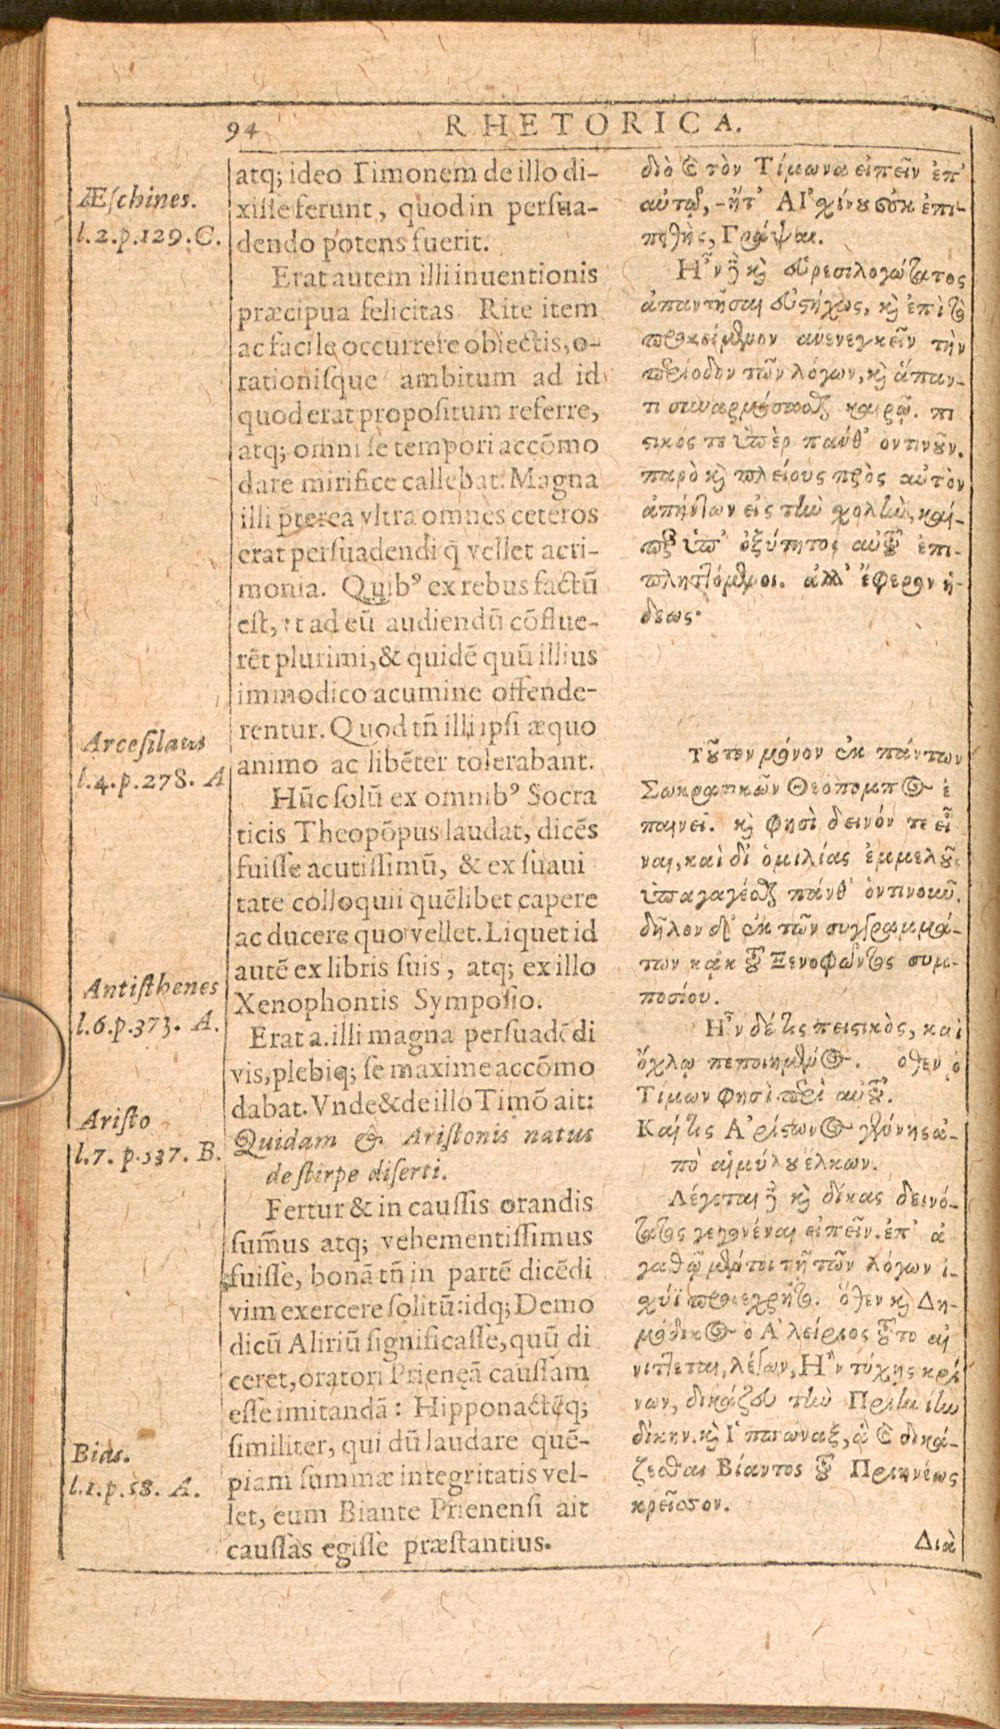 94
RHETORICA.
Æschines.
l.2.p.129.C.
Arcesilaus
l.4.p.278. A
Antisthenes
l.6.p.373. A.
Aristo
l.7. p.537. B.
Bias.
l.1.p.58. A.
atq; ideo Timonem de illo di-
xisse ferunt, quod in persua-
dendo potens fuerit.
Erat autem illi inuentionis
præcipua felicitas Rite item
ac facile occurrere obiectis, o-
rationisque ambitum ad id
quod erat propositum referre,
atq; omni se tempori accõmo
dare mirifice callebat. Magna
illi pterea vltra omnes ceteros
erat persuadendi q̃ vellet acri-
monia. Quibꝰ ex rebus factũ
est, vt ad eũ audiendũ cõflue-
rẽt plurimi, & quidẽ quũ illius
immodico acumine offende-
rentur. Quod tñ illi ipsi æquo
animo ac libẽter tolerabant.
Hũc solũ ex omnibꝰ Socra
ticis Theopõpus laudat, dicẽs
fuisse acutissimũ, & ex suaui
tate colloquii quẽlibet capere
ac ducere quo vellet. Liquet id
autẽ ex libris suis, atq; ex illo
Xenophontis Symposio.
Erat a. illi magna persuadẽdi
vis, plebiq; se maxime accõmo
dabat. Vnde & de illo Timõ ait:
Quidam & Aristonis natus
de stirpe diserti.
Fertur & in caussis orandis
sum̃us atq; vehementissimus
fuisse, bonã tñ in partẽ dicẽdi
vim exercere solitũ: idq; Demo
dicũ Aliriũ significasse, quũ di
ceret, oratori Prienęã caussam
esse imitandã: Hipponactẽq;
similiter, qui dũ laudare quẽ-
piam summæ integritatis vel-
let, eum Biante Prienensi ait
caussas egisse præstantius.
διὸ καὶ τὸν Τίμωνα εἰπεῖν ἐπ'
αὐτῷ, -ἤτ' Αἰσχίνου οὐκ ἐπι-
πειθὴς, Γράψαι.
Ἦν δὲ καὶ εὑρεσιλογώτατος
ἀπαντῆσαι εὐστόχως, καὶ ἐπὶ τὸ
προκείμενον ανενεγκεῖν τὴν
περίοδον τῶν λόγων, καὶ ἅπαν-
τι συναρμόσασθαι καιρῷ. πι
στικός τε ὑπὲρ πάνθ' οντινοῦν.
παρὸ καὶ πλείους πρὸς αὐτὸν
ἀπήντων εἰς τὴν σχολὴν, καί-
περ ὑπ' ὀξύτητος αὐτοῦ ἐπι-
πληττόμενοι. ἀλλ' ἔφερον ἡ-
δέως·
Τοῦτον μόνον ἐκ πάντων
Σωκρατικῶν Θεόπομπος ἐ
παινεῖ. καὶ φησὶ δεινόν τε εἶ
ναι, καὶ δι' ὁμιλίας ἐμμελοῦς
ὑπαγαγέσθαι πάνθ' ὁντινοιοῦν.
δῆλον δ' ἐκ τῶν συγγραμμά-
των κἀκ τοῦ Ξενοφῶντος συμ-
ποσίου.
Ἦν δέ τις πειστικὸς, καὶ
ὄχλῳ πεποιημένος. ὅθεν ὁ
Τίμων φησὶ περὶ αὐτοῦ.
Καί τις Ἀρίστωνος γενόνης ἀ-
πὸ αἱμύλου ἕλκων.
Λέγεται δὲ καὶ δίκας δεινό-
τατος γεγονέναι εἰπεῖν. ἐπ' ἀ
γαθῷ μέντοι τῇ τῶν λόγων ἰ-
σχύϊ προσεχρῆτο. ὅθεν καὶ Δη-
μόδικος ὁ Ἀλείριος τοῦτο αἰ
νίττεται, λέγων, Ἢν τύχῃς κρί
νων, δικάζου τὴν Πριηνίην
δίκην. καὶ Ἱππώναξ, ᾧ καὶ δικά-
ζεσθαι Βίαντος τοῦ Πριηνέως
κρεῖσσον.
Διὰ